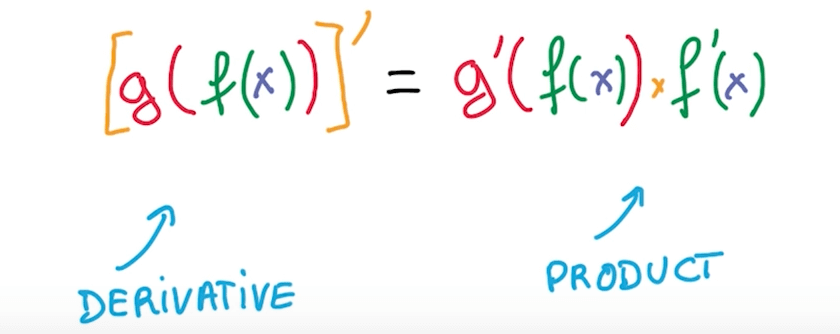 [g(f(x))]' = g'(f(x)) × f'(x)
DERiVATiVE
PRODUCT